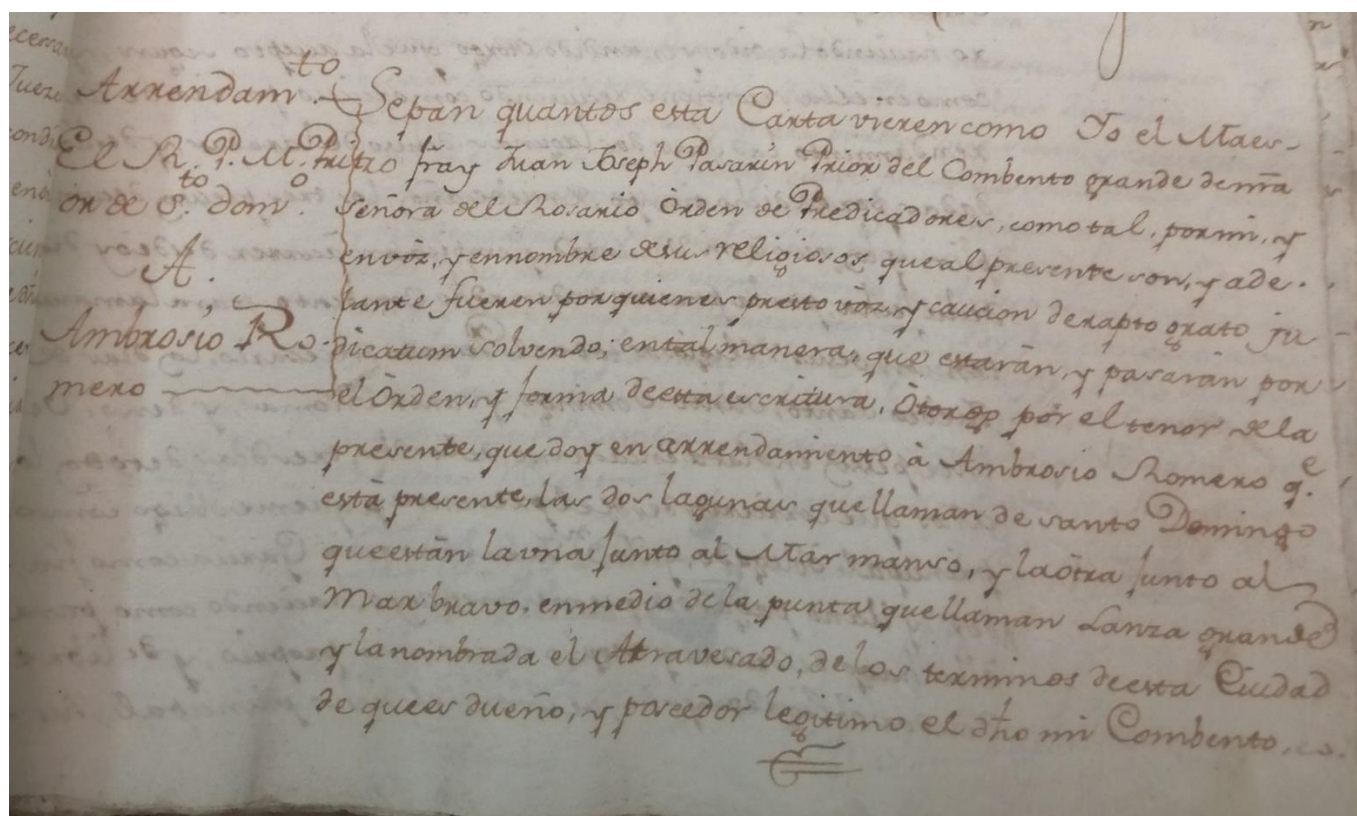 Arrendam.to
El R. P. M. Pri
or de S.to dom.o
A.
Ambrosio Ro-
mero
Sepan quantos esta Carta vieren como Yo el Maes-
tro fray Juan Joseph Pasarin Prior del Combento grande de nra
Señora del Rosario Orden de Predicadores, como tal, por mi, y
en vòz, y en nombre de sus religiosos que al presente son, y ade-
lante fueren por quienes presto vòz, y caucion de rapto grato ju-
dicatum solvendo; en tal manera, que estaràn, y pasaràn por
el Òrden, y forma de esta escritura, Òtorgo por el tenor de la
presente, que doy en arrendamiento à Ambrosio Romero q.e
està presente, las dos lagunas que llaman de santo Domingo
que estàn la vna junto al Mar manso, y la òtra junto al
Mar bravo, en medio de la punta que llaman Lanza grande
y la nombrada el Atravesado, de los terminos de esta Ciudad
de que es dueño, y poseedor legitimo el dho mi Combento,